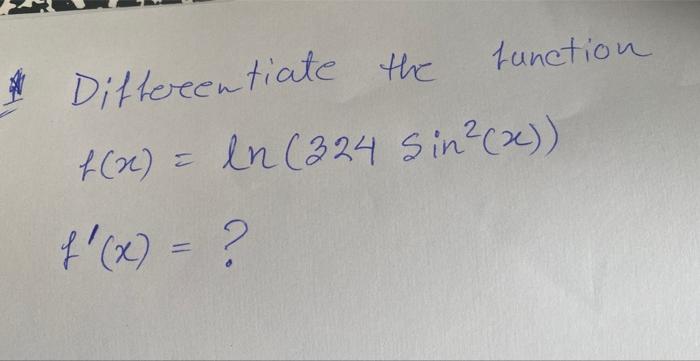 Differentiate the function
f(x) = ln(324 sin²(x))
f'(x) = ?